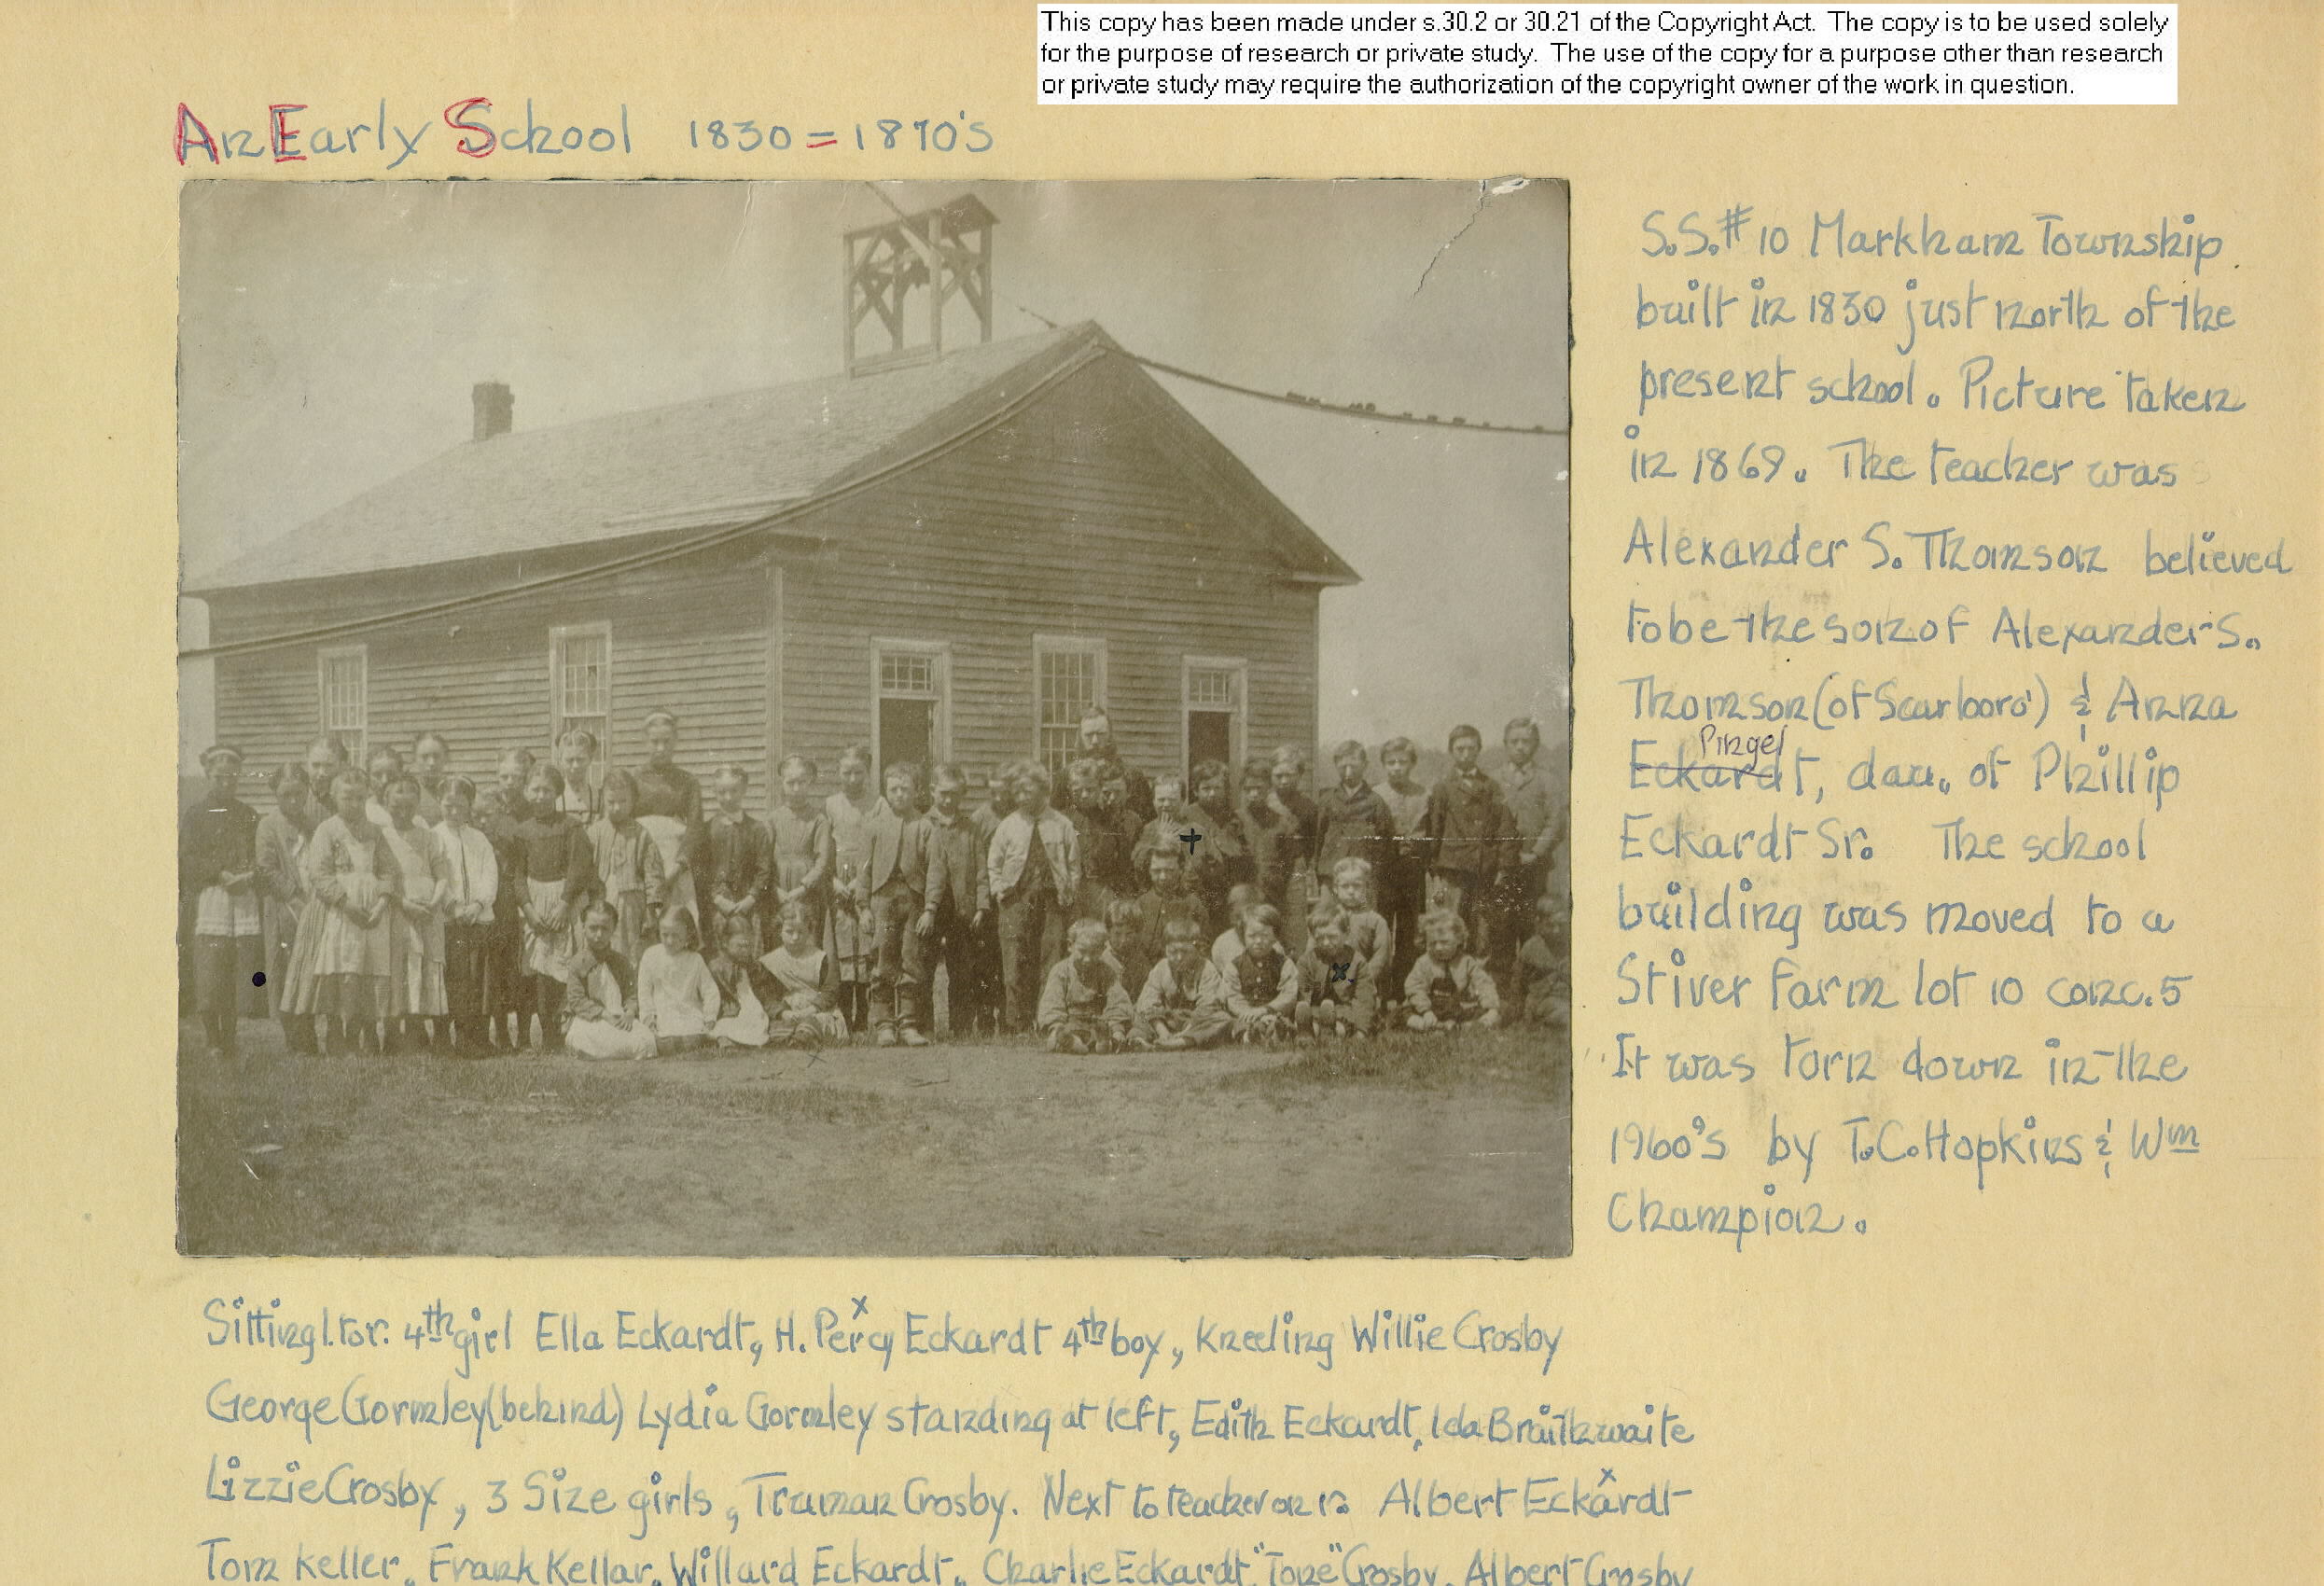 This copy has been made under s.30.2 or 30.21 of the Copyright Act. The copy is to be used solely
for the purpose of research or private study. The use of the copy for a purpose other than research
or private study may require the authorization of the copyright owner of the work in question.
An Early School 1830=1870's
S.S.# 10 Markham Township
built in 1830 just north of the
present school. Picture taken
in 1869. The teacher was
Alexander S. Thomson believed
to be the son of Alexander S.
Thomson (of Scarboro') & Anna
Pingel
Eckardt, dau. of Phillip
Eckardt Sr. The school
building was moved to a
Stiver farm lot 10 conc. 5
It was torn down in the
1960's by T.C. Hopkins & Wm
Champion.
Sitting l. to r. 4th girl Ella Eckardt, H. Percy Eckardt 4th boy, kneeling Willie Crosby
George Gormley (behind) Lydia Gormley standing at left, Edith Eckardt, Ida Braithwaite
Lizzie Crosby, 3 Size girls, Truman Crosby. Next to teacher on r: Albert Eckardt
Tom Keller, Frank Kellar, Willard Eckardt, Charlie Eckardt "Tone" Crosby, Albert Crosby